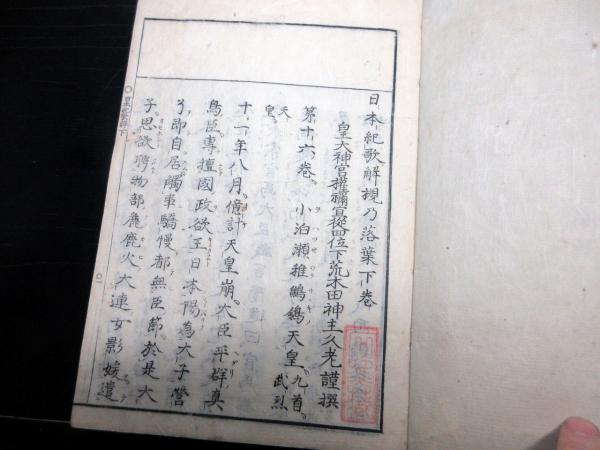 日本紀歌解槻乃落葉下巻
皇大神宮権禰宜従四位下荒木田神主久老謹撰
第十六巻　小泊瀬稚鷦鷯天皇　九首。武烈天皇
十一年八月。億計天皇崩。大臣平群真
鳥臣。専擅國政欲王日本陽為太子営
了即自居觸事驕慢都無臣節於是太
子。思欲聘物部麁鹿火大連女影媛遣